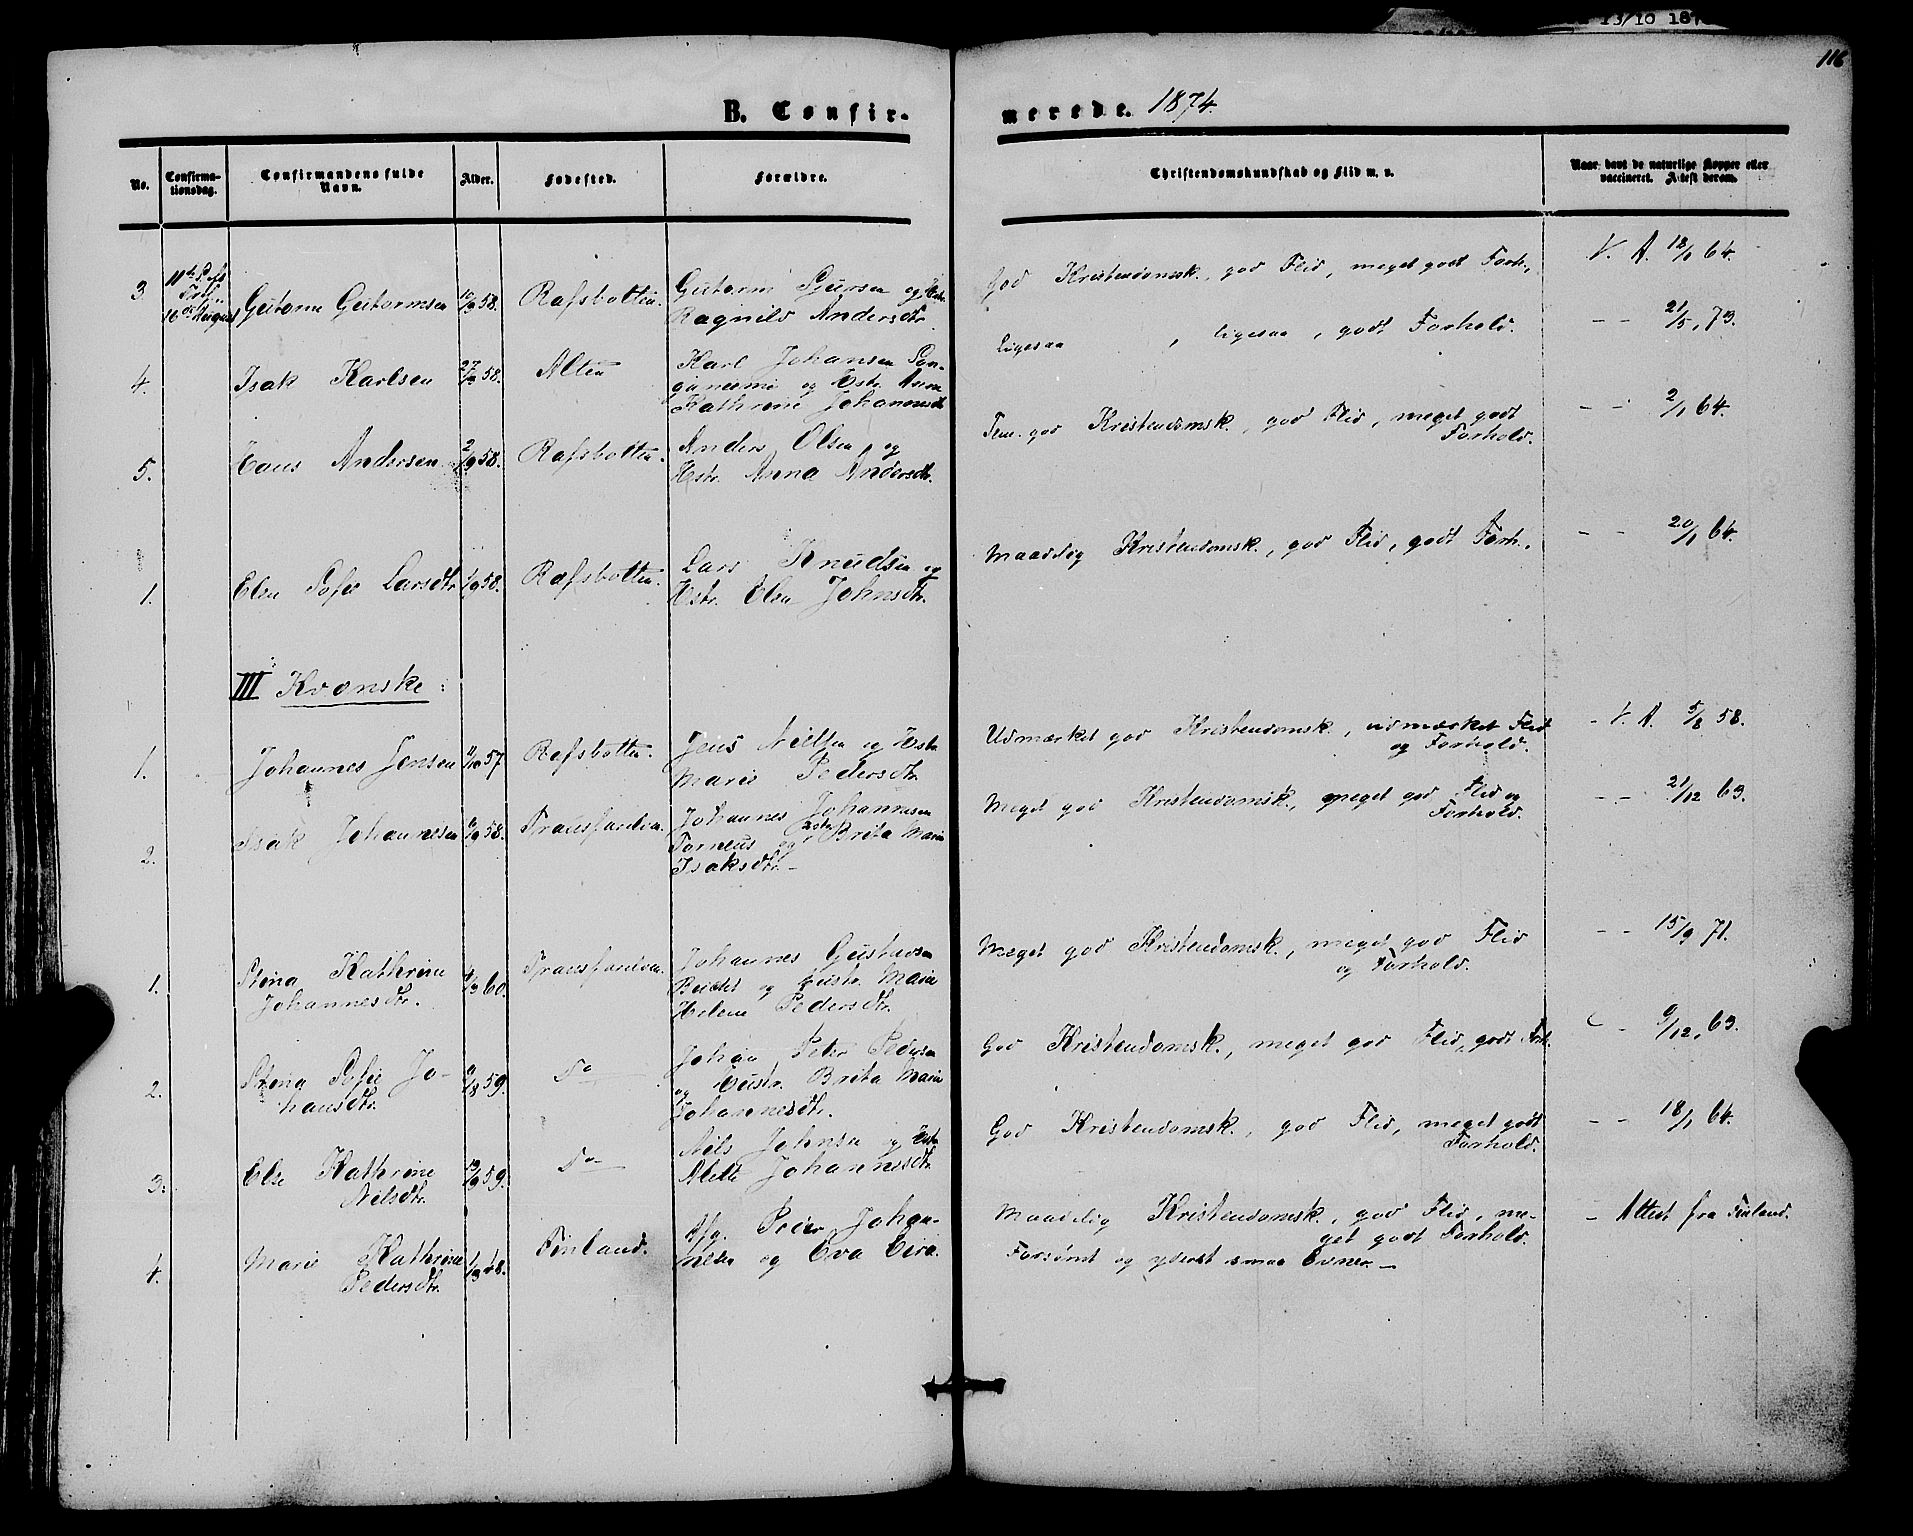 13/10 187
116
B. Confir-
merede. 1874.
No.
Confirma-
tionsdag.
Confirmandens fulde
Navn.
Alder.
Fødested.
Forældre.
Christendomskundskab og Flid m. v.
Naar havt de naturlige Kopper eller
vaccineret. Attest derom.
3. 16de August Gutorm Gutormsen 10/3 58. Rafsbotten. Gutorm Sjursen og Hstr.
Ragnild Andersdtr.
God Kristendomsk., god Flid, meget godt Forh., V. A. 12/1 64.
4. Isak Karlsen 27/3 58. Alten Karl Johansen
og Hstr. Anna
Kathrine Johannesdtr
Ligesaa, ligesaa, godt Forhold. – – 21/5, 73.
5. Hans Andersen 2/9 58. Rafsbotten. Anders Olsen og
Hstr. Anna Andersdtr.
Tem. god Kristendomsk., god Flid, meget godt
Forhold. – – 2/1 64.
1. Elen Sofie Larsdtr 1/9 58. Rafsbotten. Lars Knudsen og
Hstr. Elen Johnsdtr.
Maadelig Kristendomsk., god Flid, godt Forh., – – 20/1 64.
III Kvænske:
1. Johannes Jensen 11/10 57. Rafsbotten. Jens Nielsen og Hstr
Marie Pedersdtr.
Udmærket god Kristendomsk., udmærket Flid
og Forhold. – V. A. 5/8 58.
2. Isak Johannesen 58. Transfarelven. Johannes Johannesen
Torneus og Hstr Brita Maria
Isaksdtr. –
Meget god Kristendomsk., meget god Flid og
Forhold. – – 21/12 63.
1. Stina Kathrine
Johannesdtr. 60. Transfarelven. Johannes Gustavsen
og Hustr. Maria
Helene Pedersdtr.
Meget god Kristendomsk., meget god Flid
og Forhold. – – 15/9 71.
2. Stina Sofie Jo-
hansdtr. 59. Do Johan Peter Pedersen
og Hustr. Brita Maria
Johannesdtr.
God Kristendomsk., meget god Flid, godt Forh. – 9/12, 63.
3. Else Kathrine
Nilsdtr. 59. Do Nils Johnsen og Hstr
Alette Johannesdtr.
God Kristendomsk., god Flid, meget godt
Forhold. – – 18/1 64.
4. Marie Kathrine
Pedersdtr. 1/3 48. Finland. Afg. Peder Johan-
nesen og Eva
Maadelig Kristendomsk., god Flid, me-
get godt Forhold.
Forsømt og yderst smaa Evner. – – Attest fra Finland.